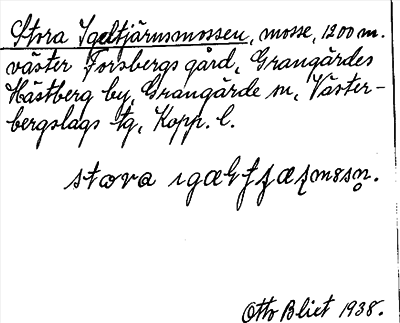 Stora Igeltjärnsmossen, mosse, 1200 m.
väster Forsbergs gård, Grangärdes
Hästberg by, Grangärde sn, Väster-
bergslags tg, Kopp. l.
stora
Otto Blixt 1938.